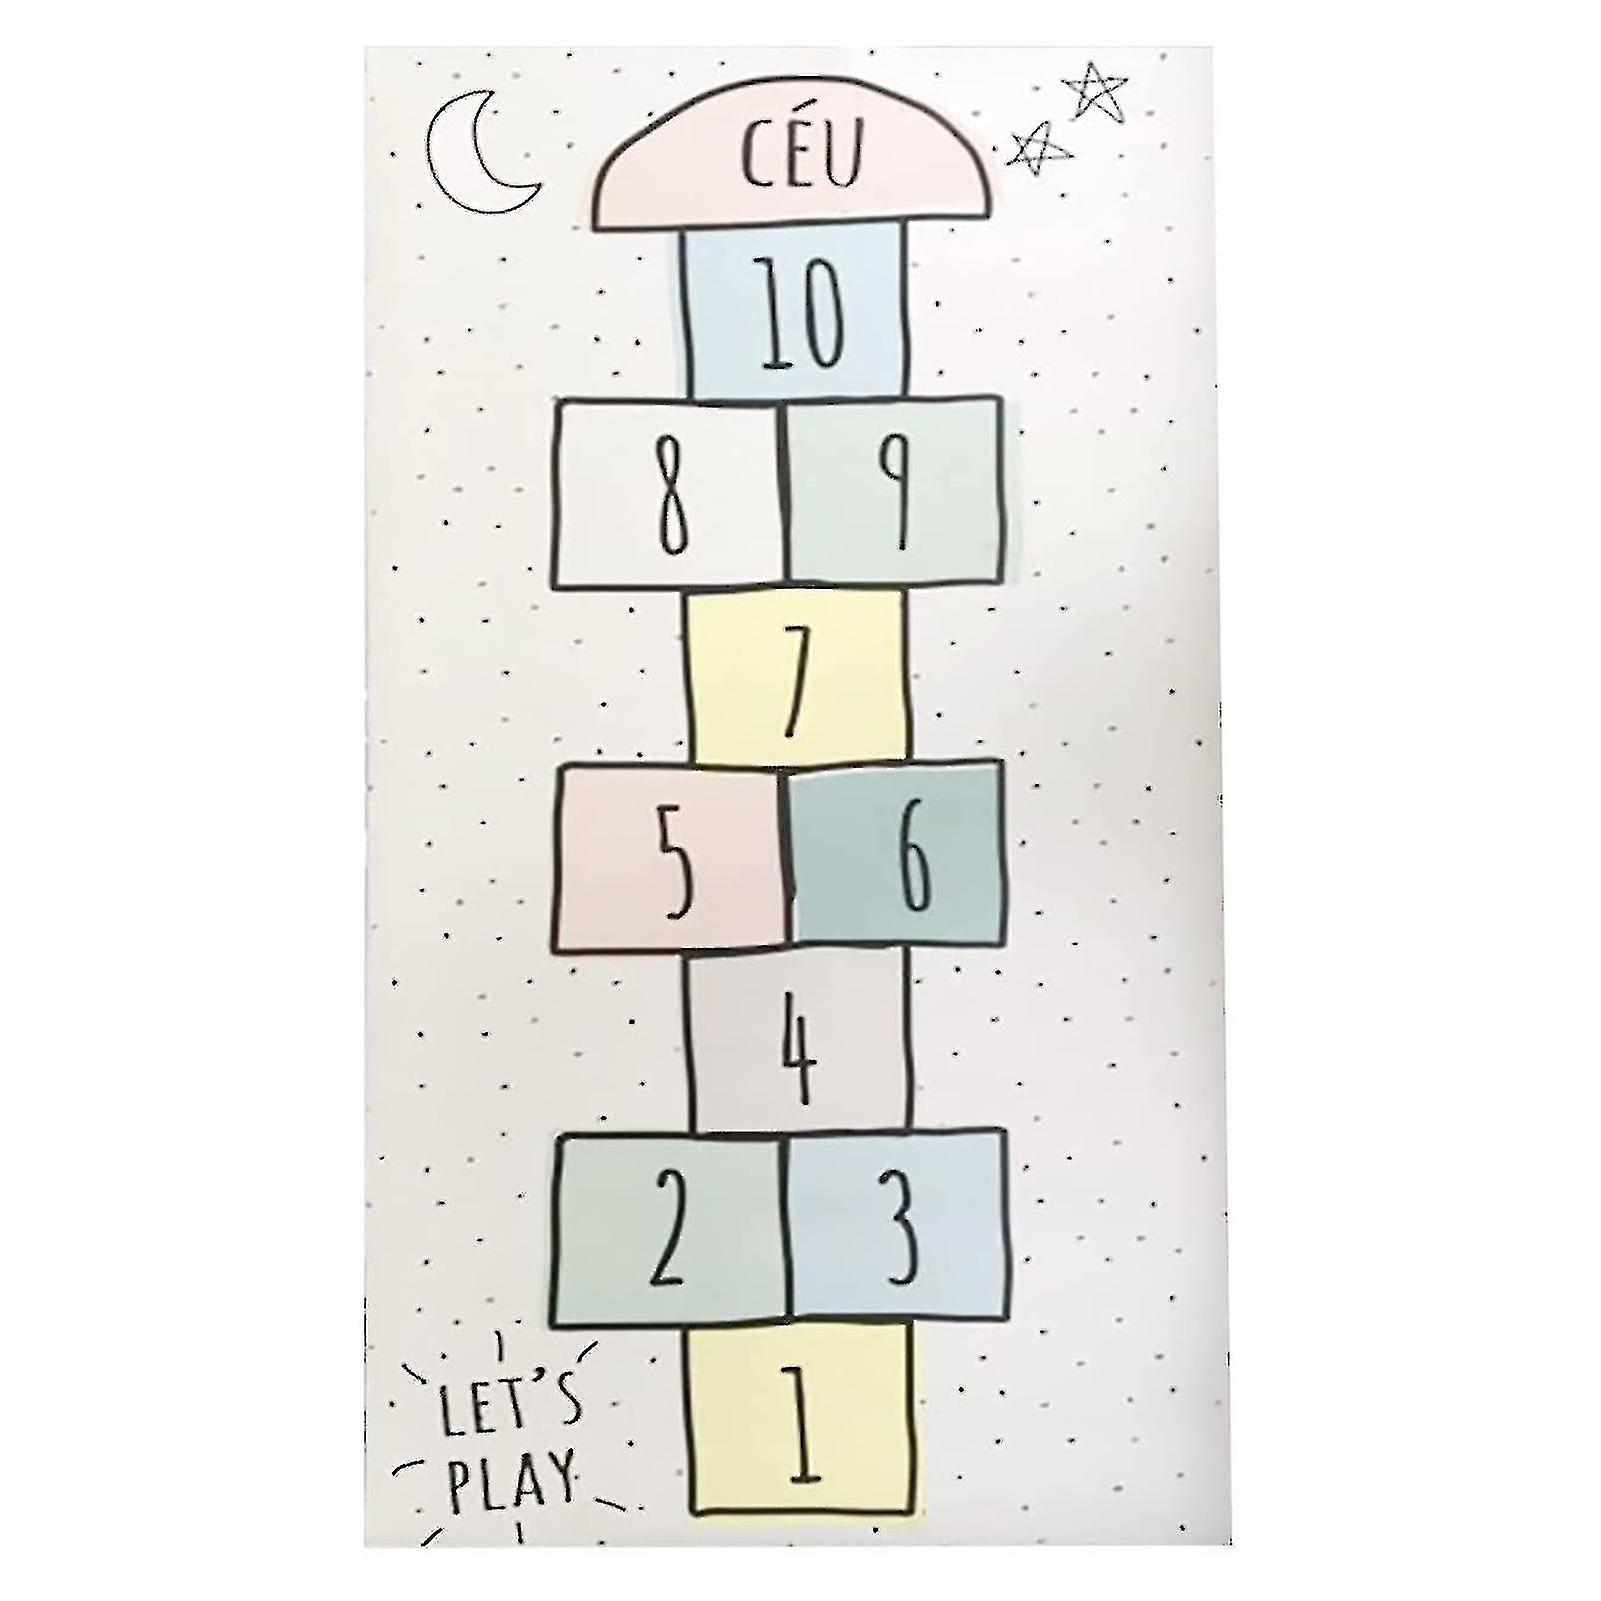 CÉU
10
8 9
7
5 6
4
2 3
1
LET'S
PLAY